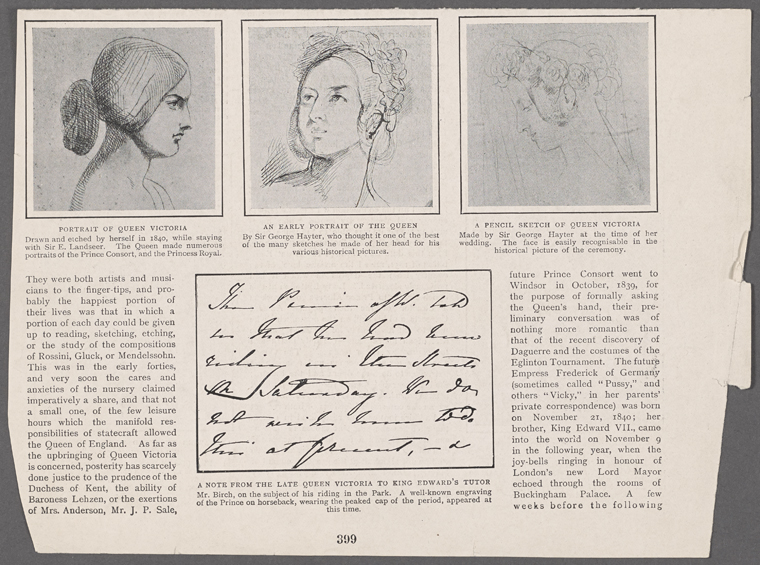 PORTRAIT OF QUEEN VICTORIA
Drawn and etched by herself in 1840, while staying
with Sir E. Landseer. The Queen made numerous
portraits of the Prince Consort, and the Princess Royal.
AN EARLY PORTRAIT OF THE QUEEN
By Sir George Hayter, who thought it one of the best
of the many sketches he made of her head for his
various historical pictures.
A PENCIL SKETCH OF QUEEN VICTORIA
Made by Sir George Hayter at the time of her
wedding. The face is easily recognisable in the
historical picture of the ceremony.
They were both artists and musi-
cians to the finger-tips, and pro-
bably the happiest portion of
their lives was that in which a
portion of each day could be given
up to reading, sketching, etching,
or the study of the compositions
of Rossini, Gluck, or Mendelssohn.
This was in the early forties,
and very soon the cares and
anxieties of the nursery claimed
imperatively a share, and that not
a small one, of the few leisure
hours which the manifold res-
ponsibilities of statecraft allowed
the Queen of England. As far as
the upbringing of Queen Victoria
is concerned, posterity has scarcely
done justice to the prudence of the
Duchess of Kent, the ability of
Baroness Lehzen, or the exertions
of Mrs. Anderson, Mr. J. P. Sale,
The of W. told
us that he had been
riding in the Streets
on Saturday. We do
not wish him to do
this at present, – &
A NOTE FROM THE LATE QUEEN VICTORIA TO KING EDWARD'S TUTOR
Mr. Birch, on the subject of his riding in the Park. A well-known engraving
of the Prince on horseback, wearing the peaked cap of the period, appeared at
this time.
future Prince Consort went to
Windsor in October, 1839, for
the purpose of formally asking
the Queen's hand, their pre-
liminary conversation was of
nothing more romantic than
that of the recent discovery of
Daguerre and the costumes of the
Eglinton Tournament. The future
Empress Frederick of Germany
(sometimes called "Pussy," and
others "Vicky," in her parents'
private correspondence) was born
on November 21, 1840; her
brother, King Edward VII., came
into the world on November 9
in the following year, when the
joy-bells ringing in honour of
London's new Lord Mayor
echoed through the rooms of
Buckingham Palace. A few
weeks before the following
399